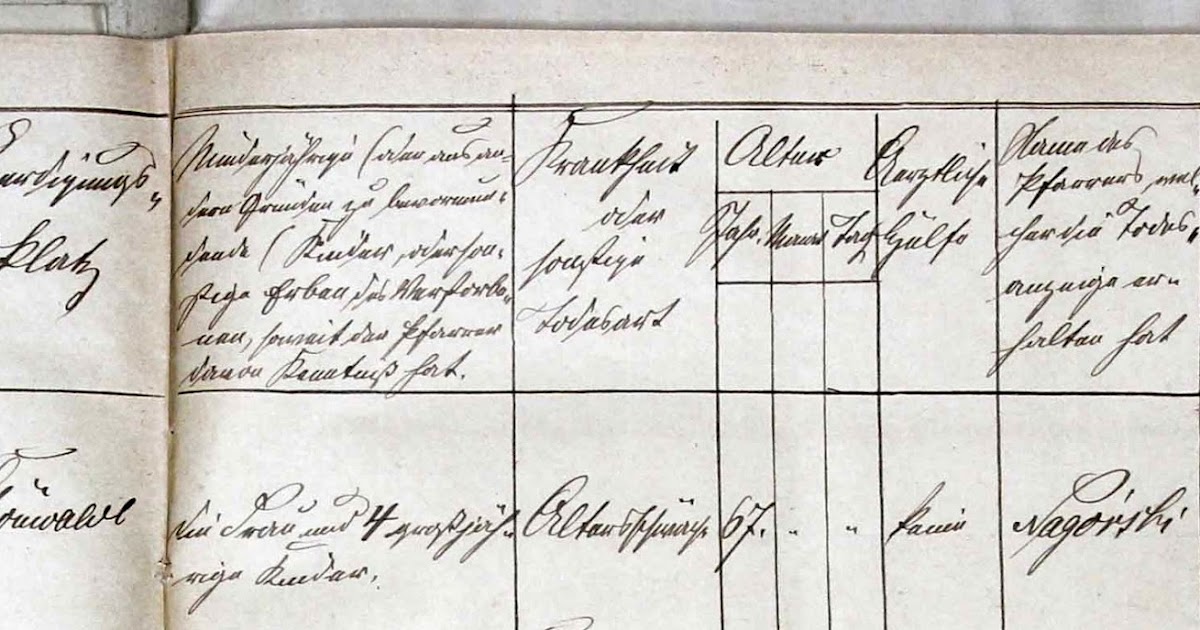 erdigungs-
Platz
Minderjährige (oder aus an-
dern Gründen zu bevormun-
dende ( Kinder, oder son-
stige Erben des Verstorbe-
nen, soweit der Pfarrer
davon Kenntniß hat.
Krankheit
oder
sonstige
Todesart
Alter
Jahr. Monat Tag
Aerztliche
Hülfe
Name des
Pfarrers, wel
cher die Todes-
anzeige er-
halten hat
die Frau und 4 großjäh-
rige Kinder.
Altersschwäche
67. " "
keine
Nagórski